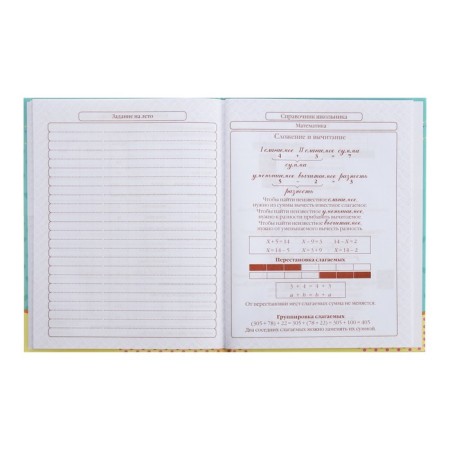 Задание на лето
Справочник школьника
Математика
Сложение и вычитание
I слагаемое II слагаемое сумма
4 + 3 = 7
сумма
уменьшаемое вычитаемое разность
5 - 2 = 3
разность
Чтобы найти неизвестное слагаемое,
нужно из суммы вычесть известное слагаемое
Чтобы найти неизвестное уменьшаемое,
нужно к разности прибавить вычитаемое
Чтобы найти неизвестное вычитаемое,
нужно от уменьшаемого вычесть разность
Перестановка слагаемых
a + b = b + a
От перестановки мест слагаемых сумма не меняется.
Группировка слагаемых
(305 + 78) + 22 = 305 + (78 + 22) = 305 + 100 = 405
Два соседних слагаемых можно заменить их суммой.